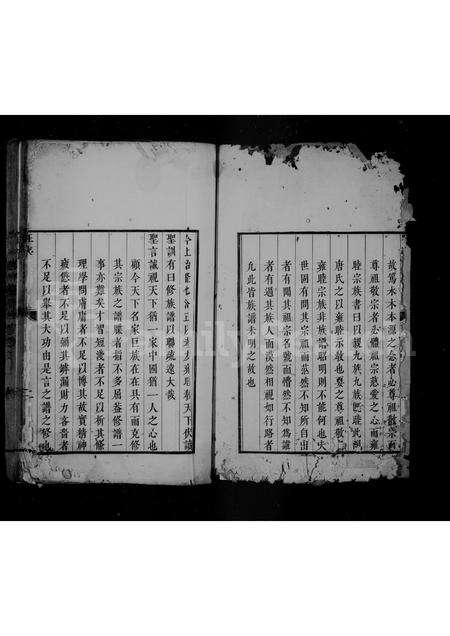 故篤木本水源之念者必尊祖敬宗
尊祖敬宗者必體祖宗慈愛之心而雍
睦宗族書曰以親九族九族既睦此
唐氏之以雍睦示敎也要之尊祖敬
雍睦宗族非族譜昭明則不能何也夫
世固有問其祖宗而茫然不知所自出
者有聞其祖宗名號而懵然不知為誰
者有過其族人而漠然相視如行路者
凡此皆族譜未明之故也
聖訓有曰修族譜以聯疏遠大哉
聖言誠視天下猶一家中國猶一人之心也
顧今天下名家巨族在在具有而克修
其宗族之譜牒者指不多屈蓋修譜一
事亦難矣才習短淺者不足以析其條
理學問膚庸者不足以博其故實精神
疲憊者不足以彌其罅漏財力吝嗇者
不足以舉其大功由是言之譜之修也